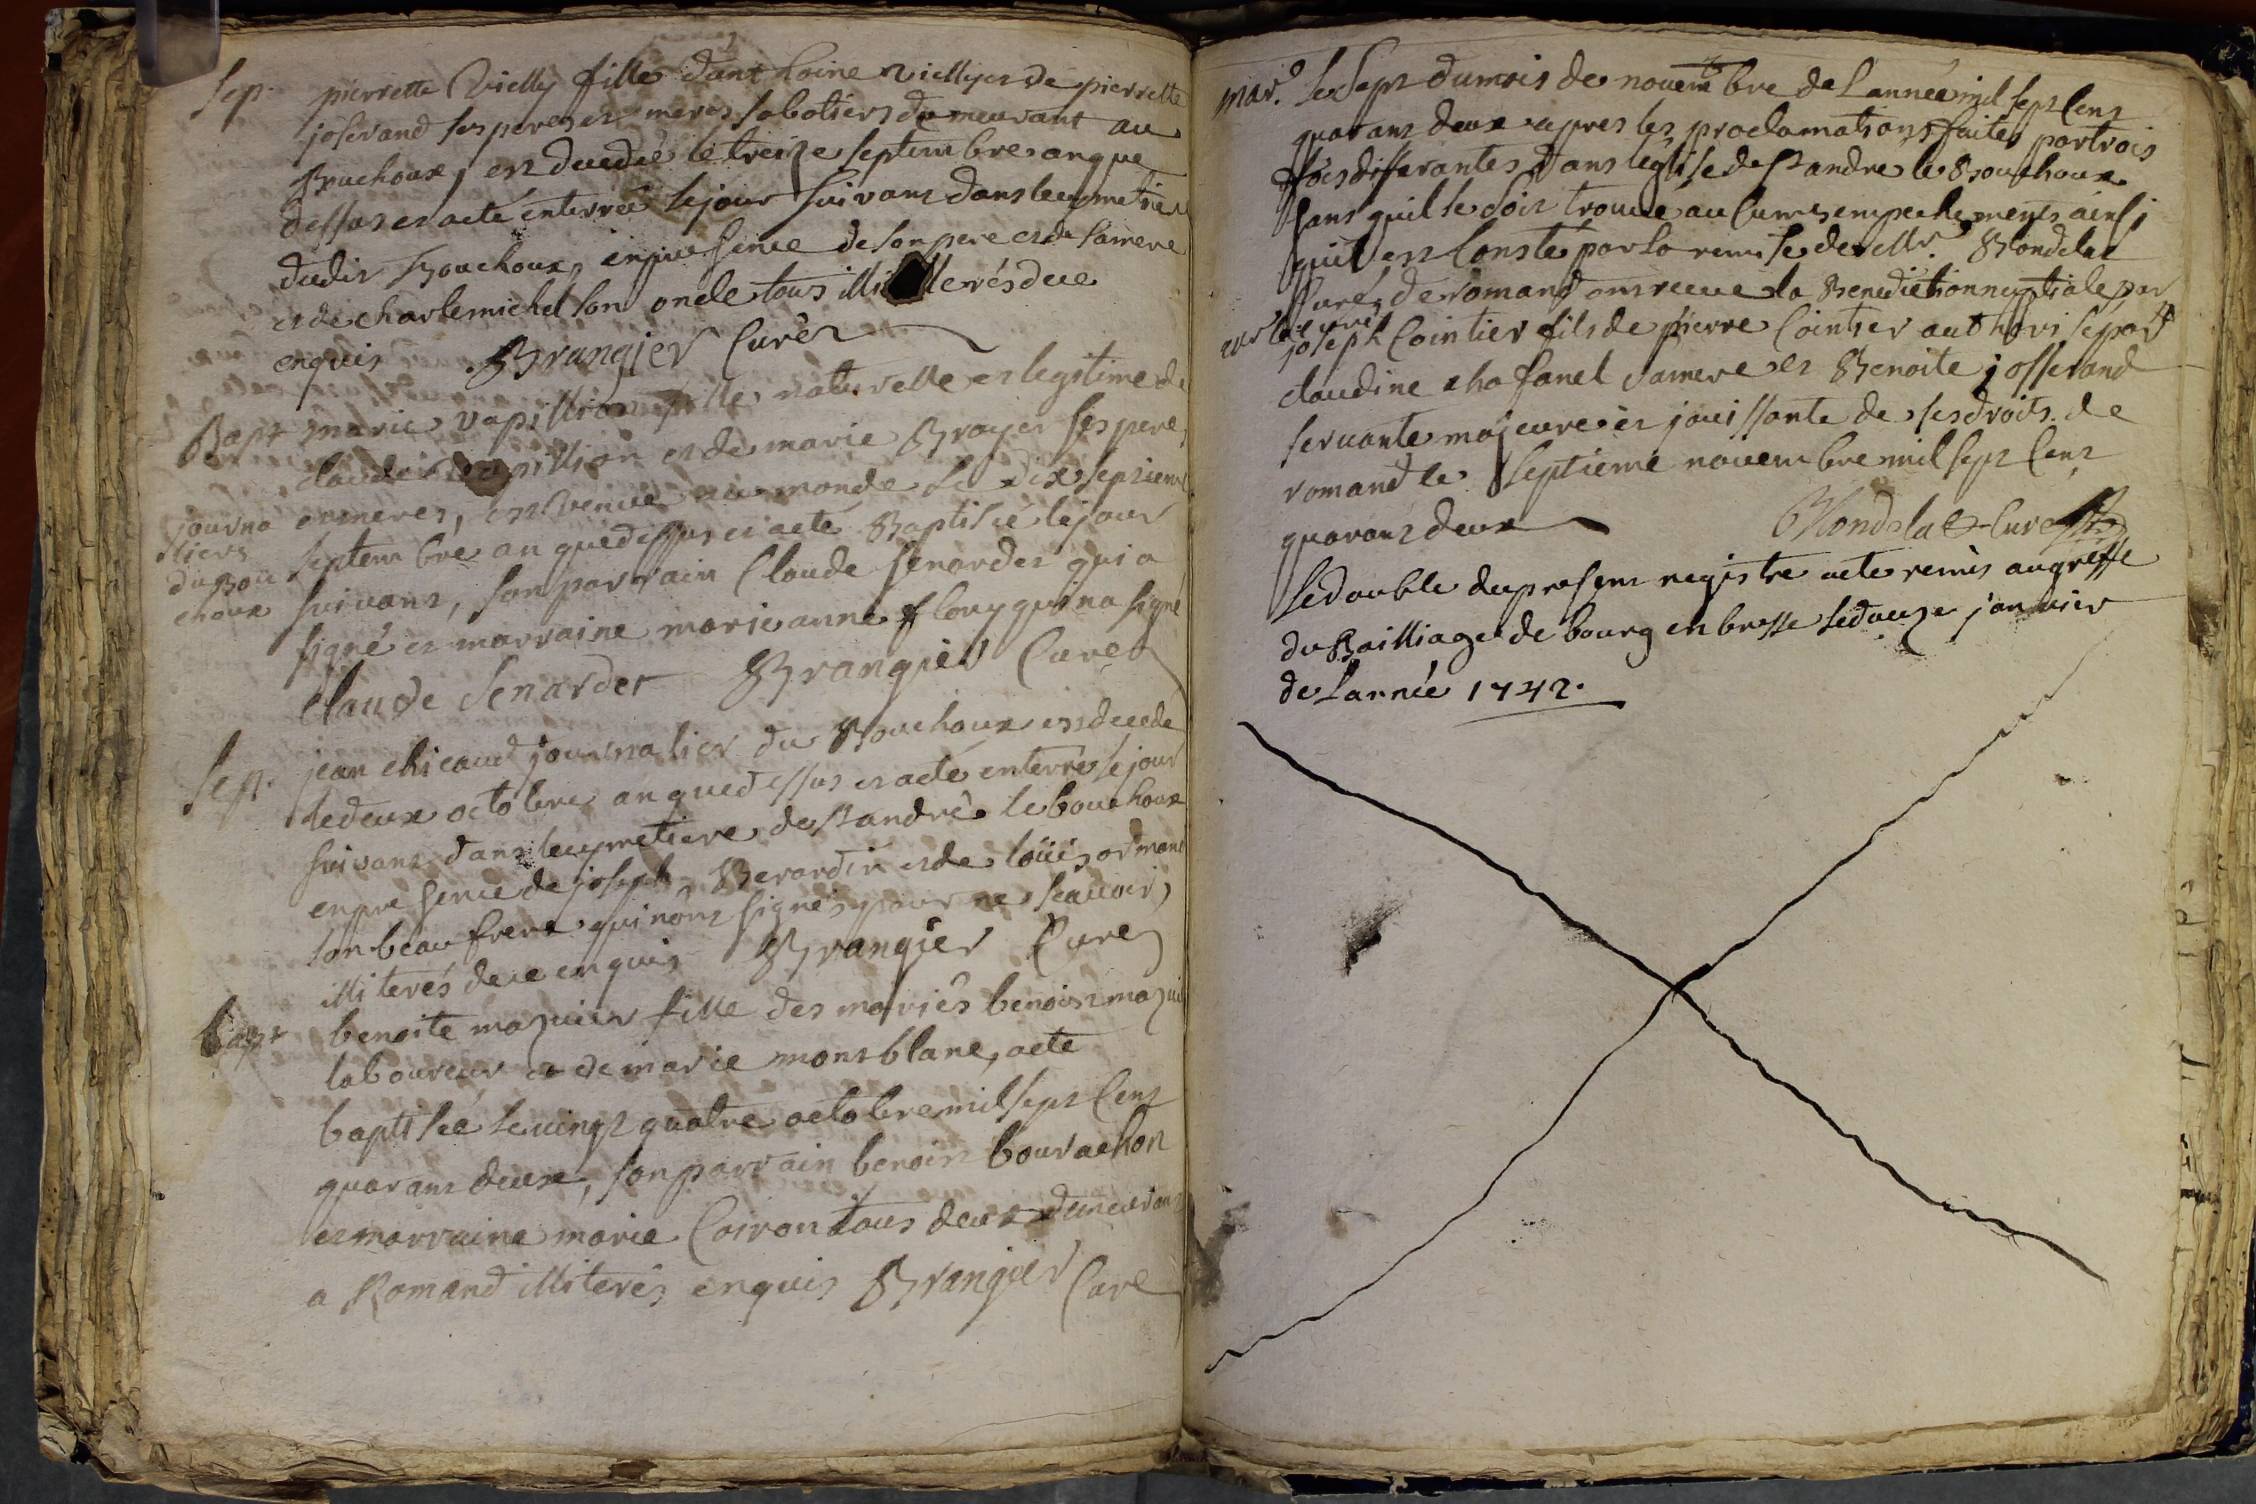 Sep. pierrette Vielly fille d'anthoine vielly et de pierrette
joserand ses pere et meres sabotiers demeurant au
Bouchoux, est decedeé le treize septembre an que
dessus et a eté enterreé le jour suivant dans le cymetiere
dudit Bouchoux, en presence de son pere et de sa mere
et de charle michel son oncle tous illi lle rés de ce
enquis Brangier Curé
Bapt marie vapillion fille naturelle et legitime de
claude vapillion et de marie Broyer ses pere
journa et meres, est venue au monde le dix septieme
liers septembre an que dessus et a eté Baptiseé le jour
du Bou suivant, son parrain Claude Senardet qui a
choux signé et marraine marie anne floury qui n'a signé
Claude Senardet Brangier Curé
Sep. jean chicaud journalier du Bouchoux est decedé
le deux octobre an que dessus et a eté enterré le jour
suivant dans le cymetiere de st andré le bouchoux
en presence de joseph Berardin et de loüis ormant
son beau frere qui n'ont signés pour ne scavoir,
illiterés de ce enquis Brangier Curé
bapt benoite mazuier fille des mariés benoist mazui
laboureur et de marie montblanc, a eté
baptiseé le vingt quatre octobre mil sept Cent
quarant deux, son parrain benoist bourachon
et marraine marie Coiron tous deux demeurant
a Romand illiterés enquis Brangier Curé
mar. Le Sept du mois de novembre de L'anneé mil sept Cent
quarant deux apres les proclamations faites par trois
fois differantes dans l'église de st andré le Bouchoux
sans qu'il se soit trouvé aucuns empechements ainsi
qu'il est Consté par la remise de Mr. Blondelat
Curé de romand ont receue la Benediction nuptiale par
joseph Cointier fils de pierre Cointier authorisé par
claudine chafanel sa mere et Benoite josserand
servante majeure et jouissante de ses droits. de
romand le septieme novembre mil sept Cent
quarant deux Blondelat Curé
Le double du present registre a eté remis au greffe
du Bailliage de bourg en bresse le douze janvier
de L'anneé 1742.